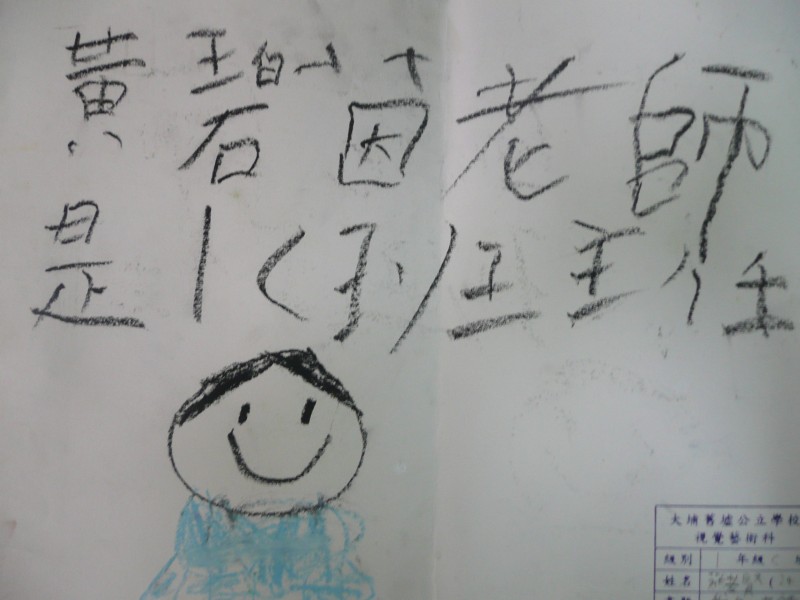 黃碧茵老師
是1C班班主任
大埔舊墟公立學校
視覺藝術科
級別 1 年級 C
姓名